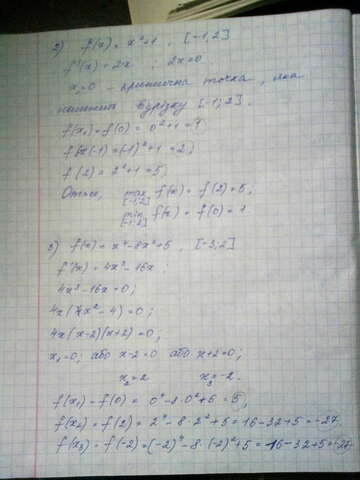 2) f(x) = x²+1 , [-1;2]
f'(x) = 2x ; 2x=0
x₁=0 – критична точка, яка
належить відрізку [-1;2].
f(x₁) = f(0) = 0²+1 = 1
f(-1) = (-1)²+1 = 2;
f(2) = 2²+1 = 5.
Отже, max f(x) = f(2) = 5;
[-1;2]
min f(x) = f(0) = 1
[-1;2]
3) f(x) = x⁴-8x²+5 , [-3;2]
f'(x) = 4x³-16x ;
4x³-16x = 0;
4x(x²-4) = 0;
4x(x-2)(x+2) = 0;
x₁=0; або x-2=0 або x+2=0;
x₂=2 x₃=-2.
f(x₁) = f(0) = 0⁴-8·0²+5 = 5,
f(x₂) = f(2) = 2⁴-8·2²+5 = 16-32+5 = -27.
f(x₃) = f(-2) = (-2)⁴-8·(-2)²+5 = 16-32+5 =